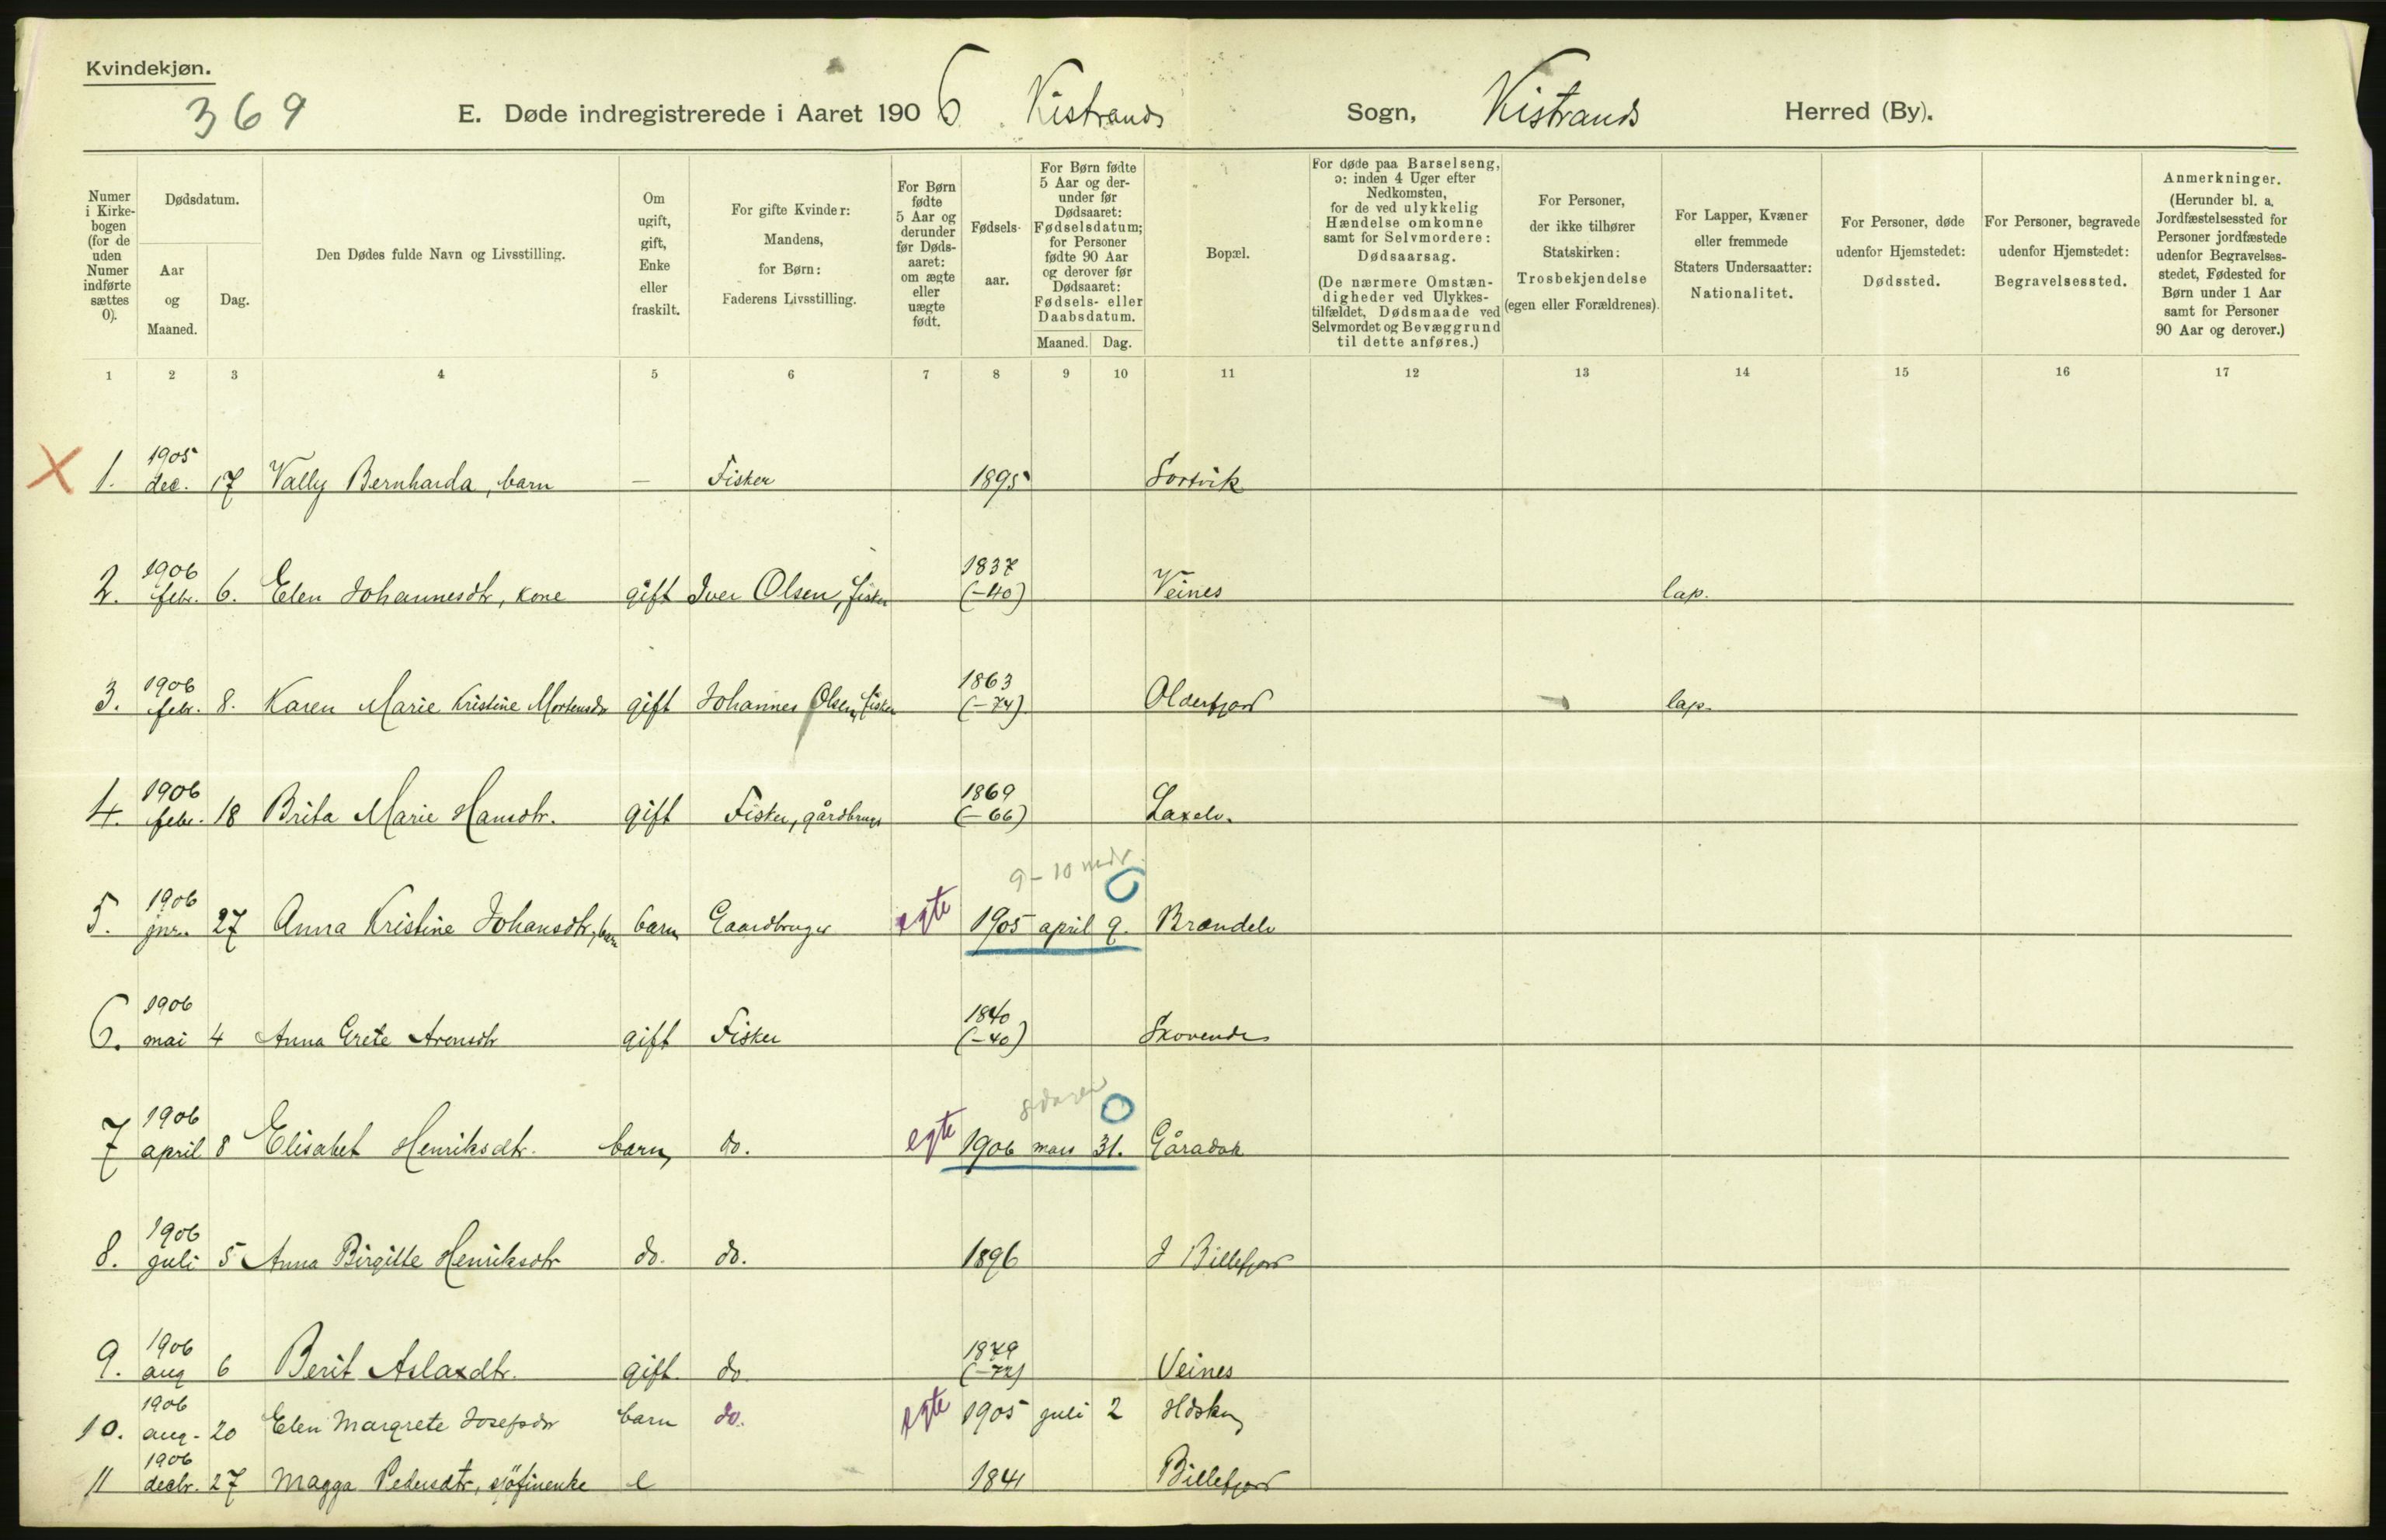 Kvindekjøn.
369 E. Døde indregistrerede i Aaret 1906. Kistrands Sogn, Kistrands Herred (By).
Numer i Kirke-bogen (for de uden Numer indførte sættes 0).
Dødsdatum.
Aar og Maaned.
Dag.
Den Dødes fulde Navn og Livsstilling.
Om ugift, gift, Enke eller fraskilt.
For gifte Kvinder: Mandens, for Børn: Faderens Livsstilling.
For Børn fødte 5 Aar og derunder før Døds-aaret: om ægte eller uægte født.
Fødsels-aar.
For Børn fødte 5 Aar og der-under før Dødsaaret: Fødselsdatum; for Personer fødte 90 Aar og derover før Dødsaaret: Fødsels- eller Daabsdatum.
Maaned. Dag.
Bopæl.
For døde paa Barselseng, ɔ: inden 4 Uger efter Nedkomsten, for de ved ulykkelig Hændelse omkomne samt for Selvmordere: Dødsaarsag.
(De nærmere Omstæn-digheder ved Ulykkes-tilfældet, Dødsmaade ved Selvmordet og Bevæggrund til dette anføres.)
For Personer, der ikke tilhører Statskirken: Trosbekjendelse (egen eller Forældrenes).
For Lapper, Kvæner eller fremmede Staters Undersaatter: Nationalitet.
For Personer, døde udenfor Hjemstedet: Dødssted.
For Personer, begravede udenfor Hjemstedet: Begravelsessted.
Anmerkninger. (Herunder bl. a. Jordfæstelsessted for Personer jordfæstede udenfor Begravelses-stedet, Fødested for Børn under 1 Aar samt for Personer 90 Aar og derover.)
1 2 3 4 5 6 7 8 9 10 11 12 13 14 15 16 17
1905
X 1. dec. 17 Vally Bernharda, barn — Fisker 1895 Sortvik
1906 1837
2. febr. 6. Elen Johannesdtr, kone gift Iver Olsen, fisker (-40) Veines lap.
1906 1863
3. febr. 8. Karen Marie Kristine Mortensdr gift Johannes Olsen, fisker (-74) Olderfjord lap.
1906 1869
4. febr. 18 Brita Marie Hansdtr. gift Fisker, gårdbruger (-66) Laxelv.
9-10 mdr.
1906
5. jnr. 27 Anna Kristine Johansdtr, barn barn Gaardbruger egte 1905 april 9. Brændelv
1906 1840
6. mai 4 Anna Grete Arensdtr gift Fisker (-40)
8 dager
1906
7 april 8 Elisabet Henriksdtr. barn do. egte 1906 mars 31. Gåradak
1906
8. juli 5 Anna Birgitte Henriksdtr do. do. 1896 I Billefjord
1906 1849
9. aug 6 Berit Aslaxdtr. gift do. (-72) Veines
1906
10. aug. 20 Elen Margrete Josefsdr barn do. egte 1905 juli 2
1906
11 decbr. 27 Magga Pedersdtr, sjöfinenke e 1841 Billefjord